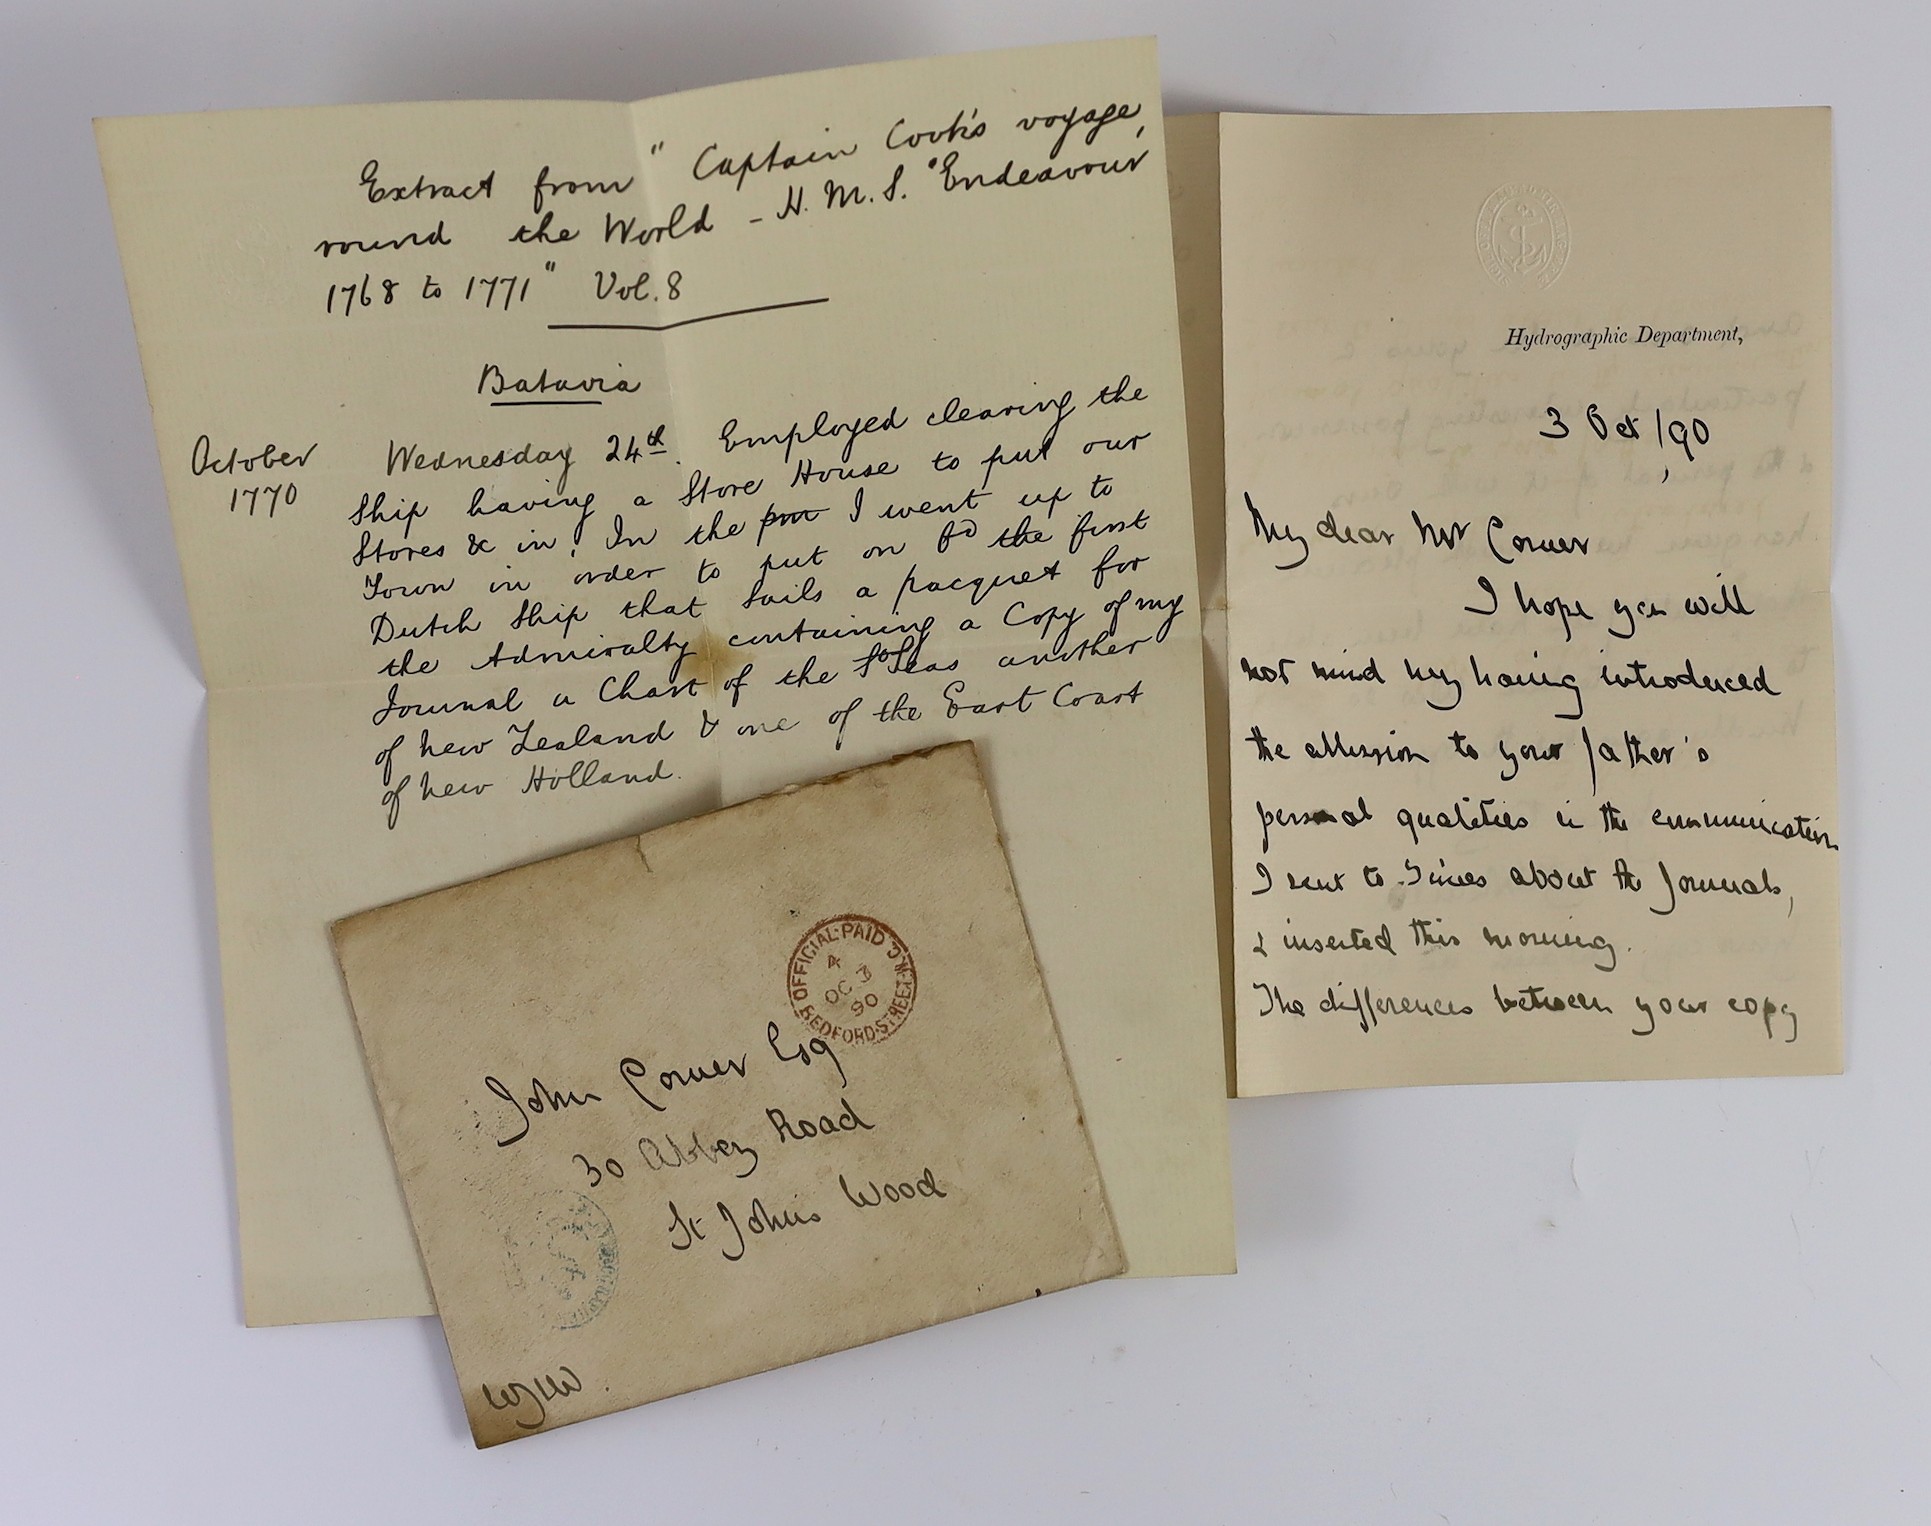 Extract from "Captain Cook's voyage,
round the World - H.M.S. "Endeavour
1768 to 1771" Vol. 8
Batavia
October
1770
Wednesday 24th. Employed clearing the
Ship having a Store House to put our
Stores &c in. In the pm I went up to
Town in order to put on bd the first
Dutch Ship that Sails a pacquet for
the Admiralty containing a Copy of my
Journal a Chart of the So Seas another
of New Zealand & one of the East Coast
of New Holland.
Hydrographic Department,
3 Oct /90
My dear Mr Corner
I hope you will
not mind my having introduced
the allusion to your father's
personal qualities in the communication
I sent to Times about the Journals,
& inserted this morning.
The differences between your copy
OFFICIAL·PAID
A
OC 3
90
BEDFORD·STREET·W.C.
John Corner Esq
30 Abbey Road
St Johns Wood
WJLW.